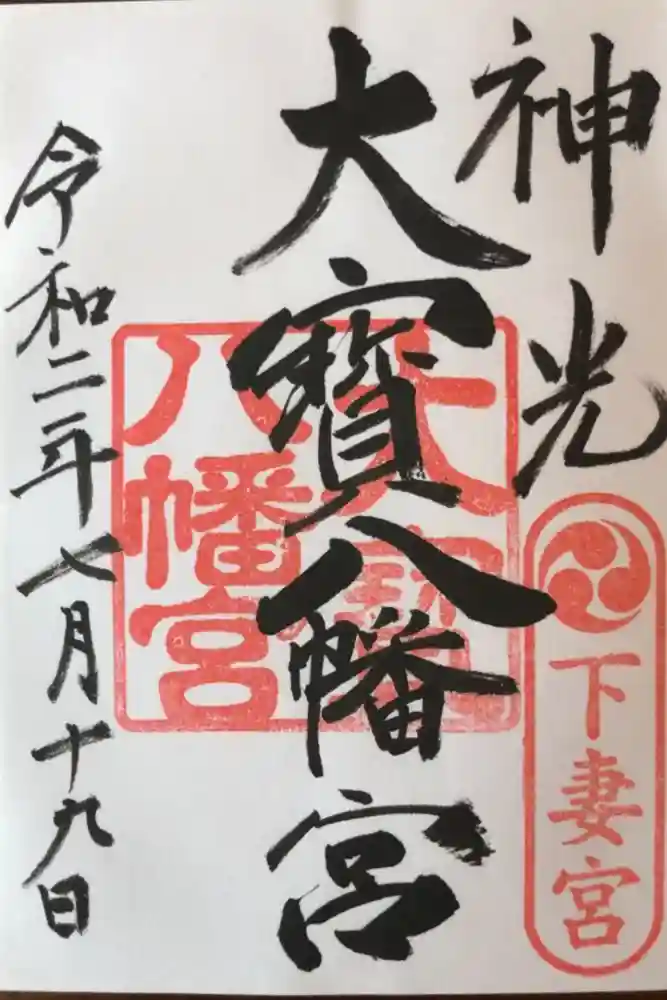 神光
下妻宮
大寳八幡宮
大寳八幡宮
令和二年七月十九日